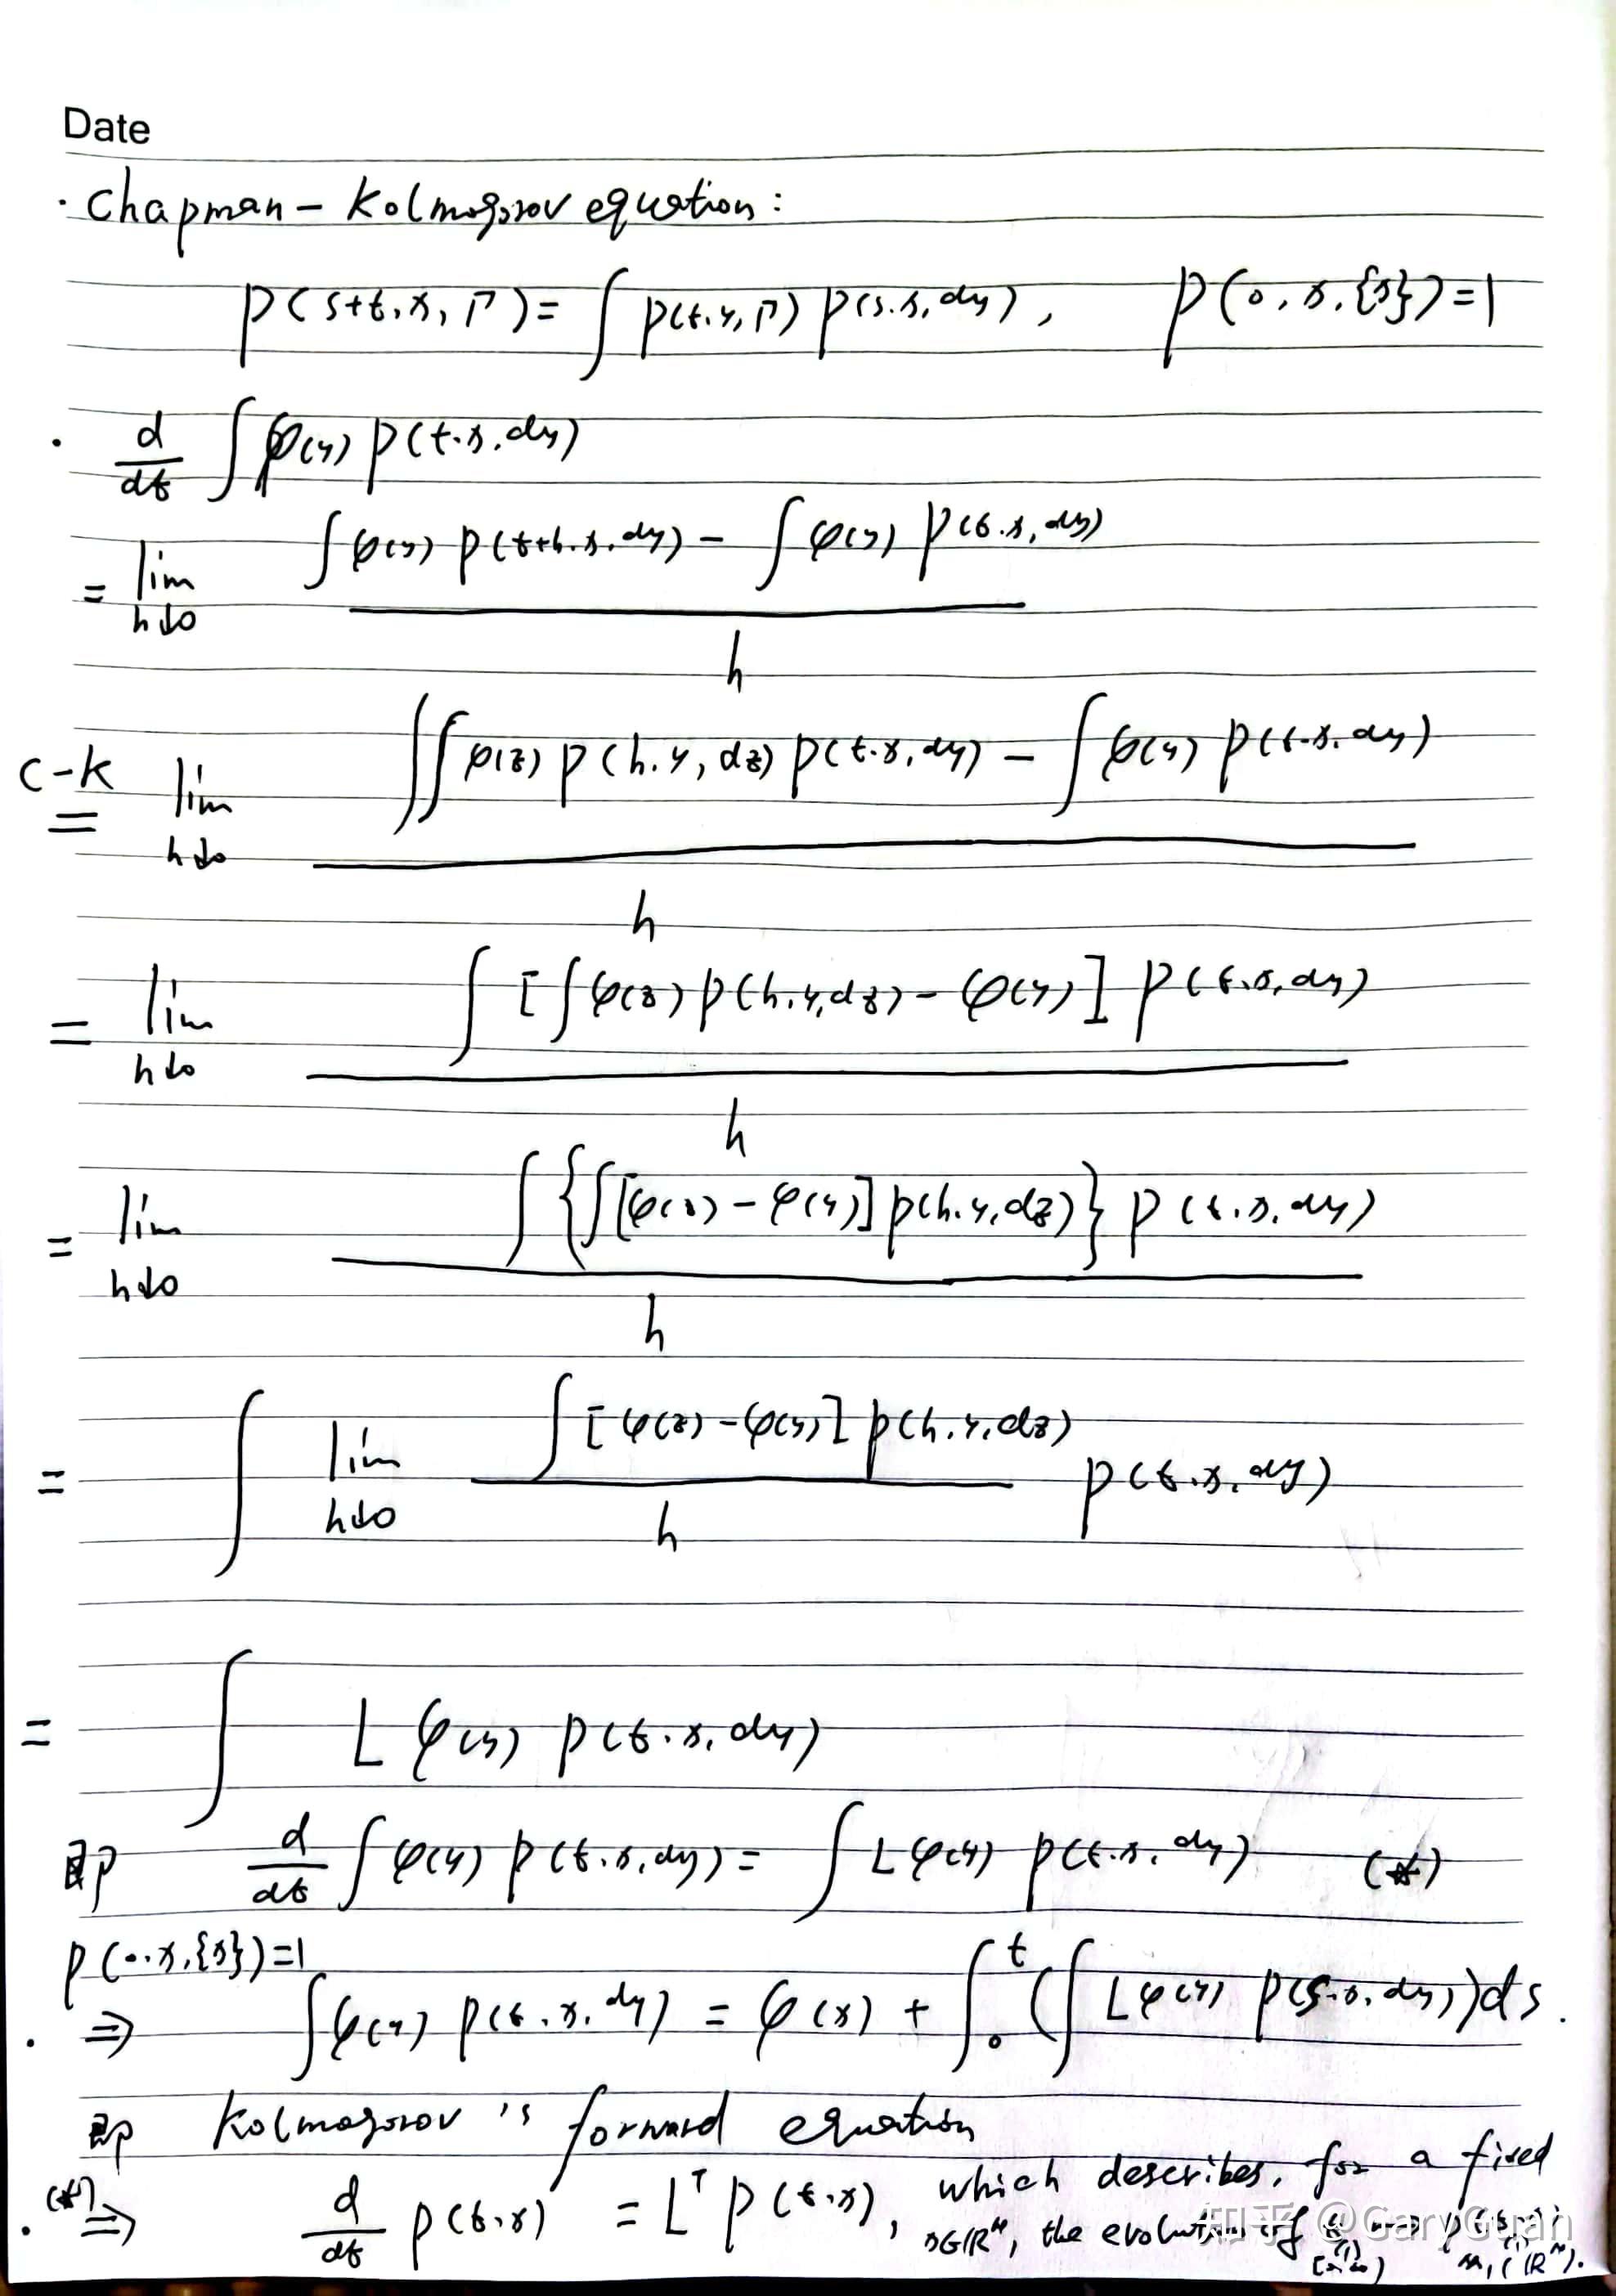 Date
· Chapman-Kolmogorov equation:
P(s+t, x, Γ) = ∫ P(t, y, Γ) P(s, x, dy), P(0, x, {x}) = 1
· d/dt ∫ φ(y) P(t, x, dy)
= lim h↓0 [∫ φ(y) P(t+h, x, dy) - ∫ φ(y) P(t, x, dy)] / h
C-K = lim h↓0 [∫∫ φ(z) P(h, y, dz) P(t, x, dy) - ∫ φ(y) P(t, x, dy)] / h
= lim h↓0 ∫ [∫ φ(z) P(h, y, dz) - φ(y)] P(t, x, dy) / h
= lim h↓0 ∫ {∫ [φ(z) - φ(y)] P(h, y, dz)} P(t, x, dy) / h
= ∫ lim h↓0 ∫ [φ(z) - φ(y)] P(h, y, dz) / h P(t, x, dy)
= ∫ Lφ(y) P(t, x, dy)
即 d/dt ∫ φ(y) P(t, x, dy) = ∫ Lφ(y) P(t, x, dy) (*)
P(0, x, {x}) = 1
· ⇒ ∫ φ(y) P(t, x, dy) = φ(x) + ∫₀ᵗ (∫ Lφ(y) P(s, x, dy)) ds.
即 Kolmogorov's forward equation
· (*) ⇒ d/dt P(t, x) = Lᵀ P(t, x), which describes, for a fixed
x∈ℝᴺ, the evolution of
知乎 @GaryGuan